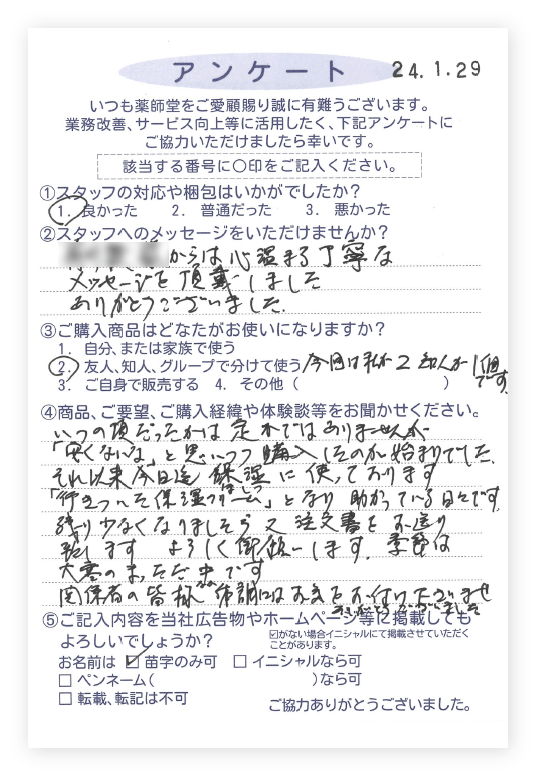 アンケート 24.1.29
いつも薬師堂をご愛顧賜り誠に有難うございます。
業務改善、サービス向上等に活用したく、下記アンケートに
ご協力いただけましたら幸いです。
該当する番号に〇印をご記入ください。
①スタッフの対応や梱包はいかがでしたか?
1. 良かった 2. 普通だった 3. 悪かった
②スタッフへのメッセージをいただけませんか?
からは心温まる丁寧な
メッセージを頂戴しました
ありがとうございました.
③ご購入商品はどなたがお使いになりますか?
1. 自分、または家族で使う
2. 友人、知人、グループで分けて使う 今回は私が2 知人が1個です
3. ご自身で販売する 4. その他( )
④商品、ご要望、ご購入経緯や体験談等をお聞かせください。
いつの頃だったかは定かではありませんが
「安くないな」と思いつつ購入したのが始まりでした.
それ以来今日迄保湿に使っております
「行きついた保湿クリーム」となり助かっている日々です.
残り少なくなりましたら又注文書をお送り
致します よろしく御願いします. 季節は
大寒のまっただ中です
関係者の皆様 体調にはお気をお付け下さいませ
ありがとうございました
⑤ご記入内容を当社広告物やホームページ等に掲載しても
よろしいでしょうか?
☑がない場合イニシャルにて掲載させていただく
ことがあります。
お名前は ☑ 苗字のみ可 □ イニシャルなら可
□ ペンネーム( )なら可
□ 転載、転記は不可
ご協力ありがとうございました。